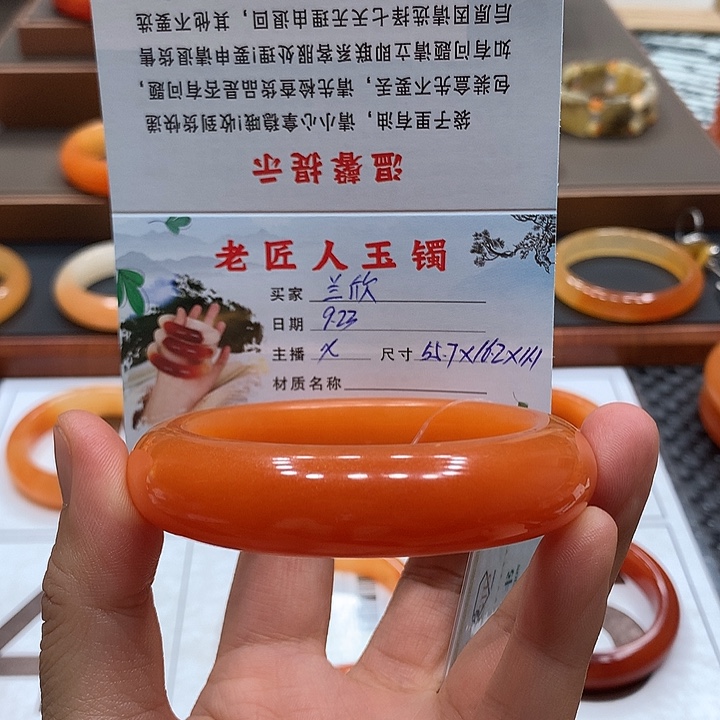 温馨提示
袋子里有油，请小心拿稳哦!收到货快递
包装盒先不要丢，请先检查货品是否有问题，
如有问题请立即联系客服处理!要申请退货售
后原因请选择七天无理由退回，其他不要选
老匠人玉镯
买家 兰欣
日期 9.23
主播 X 尺寸 55.7X16.2X11.1
材质名称